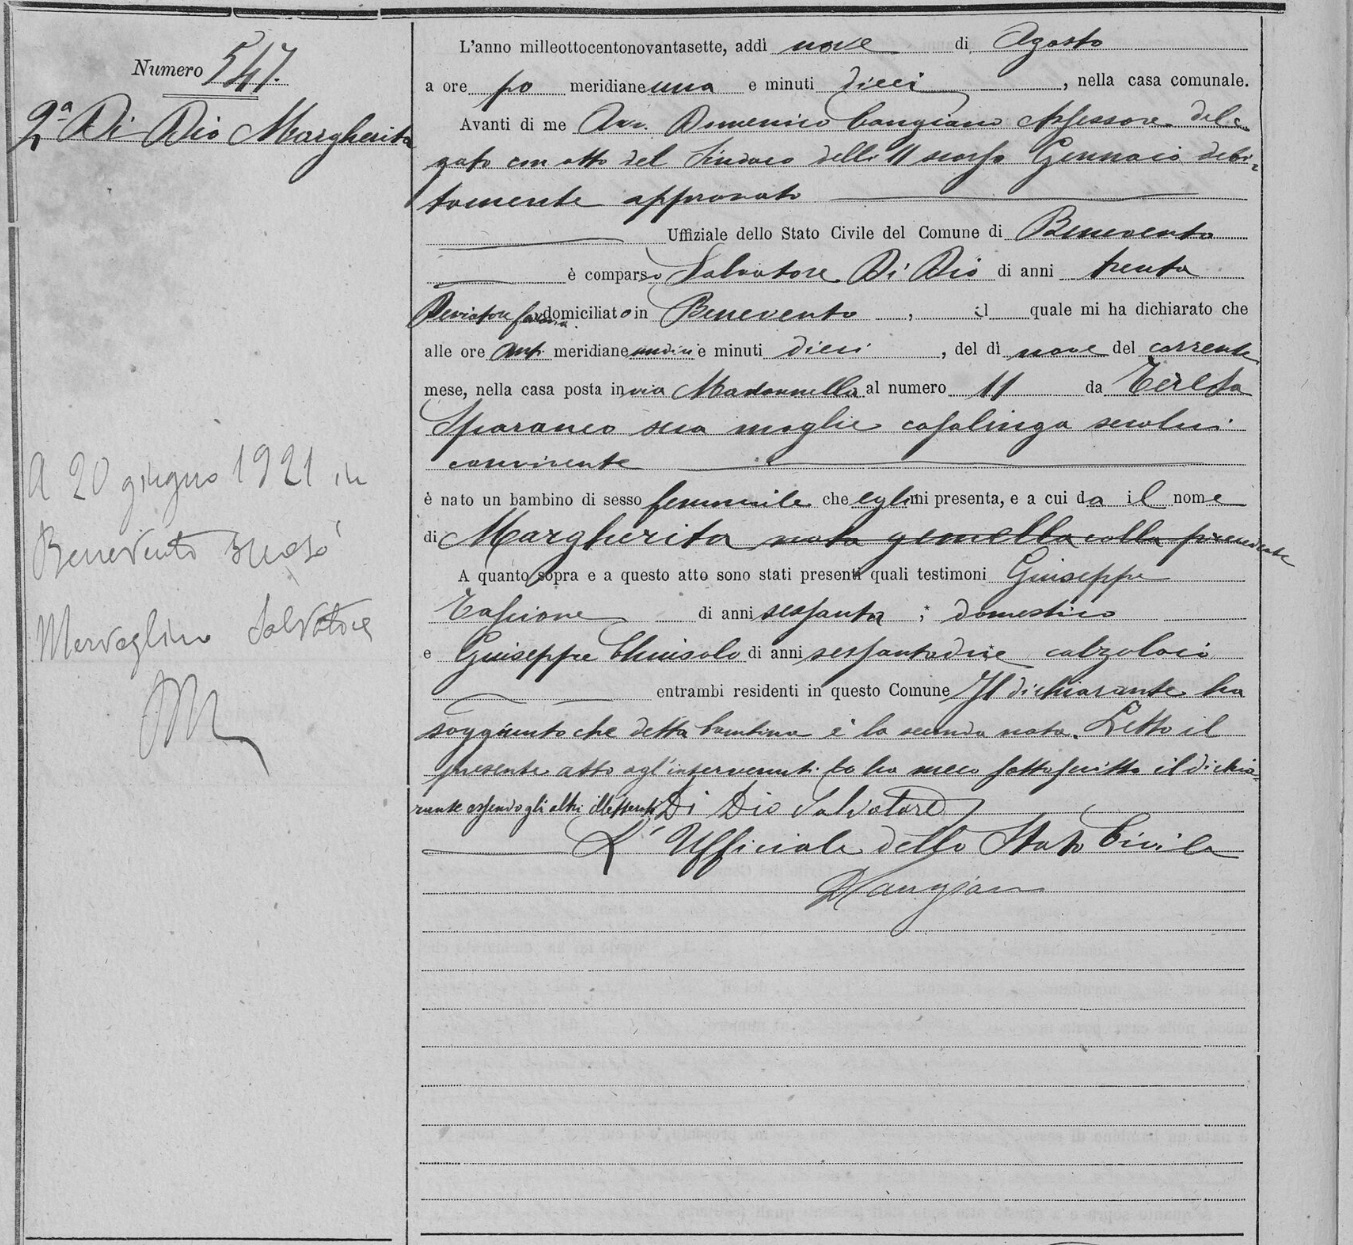 Numero 547.
2ª Di Dio Margherita
A 20 giugno 1921 in
Benevento sposò
Salvatore
L'anno milleottocentonovantasette, addì nove di Agosto
a ore po meridiane una e minuti dieci, nella casa comunale.
Avanti di me Avv. Domenico Cangiano Assessore dele
gato con atto del Sindaco delli 11 scorso Gennaio debi-
tamente approvato
Uffiziale dello Stato Civile del Comune di Benevento
è comparso Salvatore Di Dio di anni trenta
domiciliato in Benevento, il quale mi ha dichiarato che
alle ore ant meridiane undici e minuti dieci, del dì nove del corrente
mese, nella casa posta in via Madonnella al numero 11 da Teresa
Sparaneo sua moglie casalinga secolui
convivente
è nato un bambino di sesso femminile che egli mi presenta, e a cui da il nome
di Margherita nata gemella colla precedente
A quanto sopra e a questo atto sono stati presenti quali testimoni Giuseppe
Tassione di anni sessanta, domestico
e Giuseppe Chiusolo di anni sessantadue calzolaio
entrambi residenti in questo Comune Il dichiarante ha
soggiunto che detta bambina è la seconda nata. Letto il
presente atto agl'intervenuti lo ha meco sottoscritto il dichia-
rante essendo gli altri illetterati Di Dio Salvatore
L'Ufficiale dello Stato Civile
DCangiano